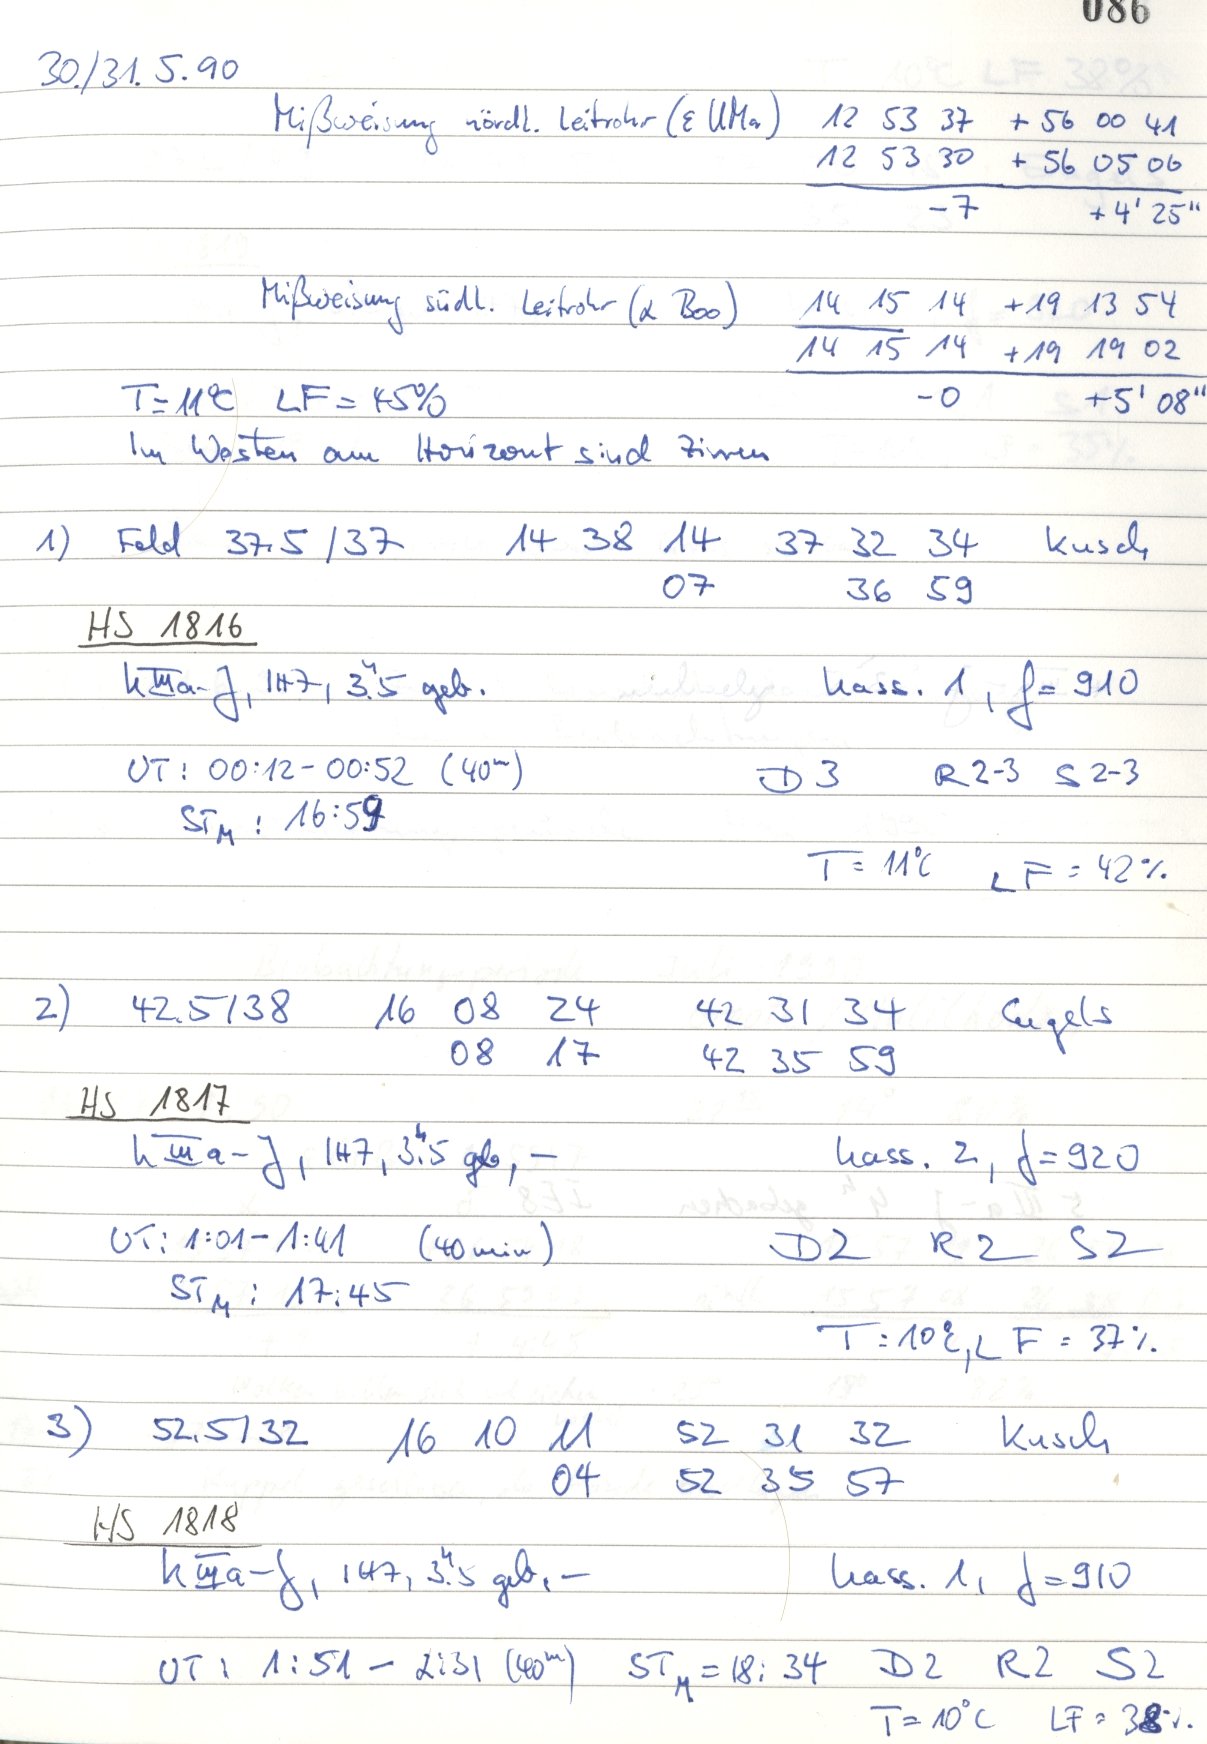 086
30./31. 5. 90
Mißweisung nördl. Leitrohr (ε UMa) 12 53 37 + 56 00 41
12 53 30 + 56 05 06
-7 +4' 25"
Mißweisung südl. Leitrohr (α Boo) 14 15 14 +19 13 54
14 15 14 +19 19 02
-0 +5' 08"
T=11°C LF=45%
Im Westen am Horizont sind Zirren
1) Feld 37.5/37 14 38 14 37 32 34 Kusch
07 36 59
HS 1816
kIIIa-J, 1H7, 3.ʰ5 geb. Kass. 1, f=910
UT: 00:12-00:52 (40ᵐ) D3 R2-3 S2-3
STM: 16:59
T=11°C LF=42%
2) 42.5/38 16 08 24 42 31 34 Engels
08 17 42 35 59
HS 1817
kIIIa-J, 1H7, 3.ʰ5 geb, - Kass. 2, f=920
UT: 1:01-1:41 (40min) D2 R2 S2
STM: 17:45
T=10°C, LF=37%
3) 52.5/32 16 10 11 52 31 32 Kusch
04 52 35 57
HS 1818
kIIIa-J, 1H7, 3.ʰ5 geb, - Kass. 1, f=910
UT: 1:51-2:31 (40ᵐ) STM=18:34 D2 R2 S2
T=10°C LF=38%